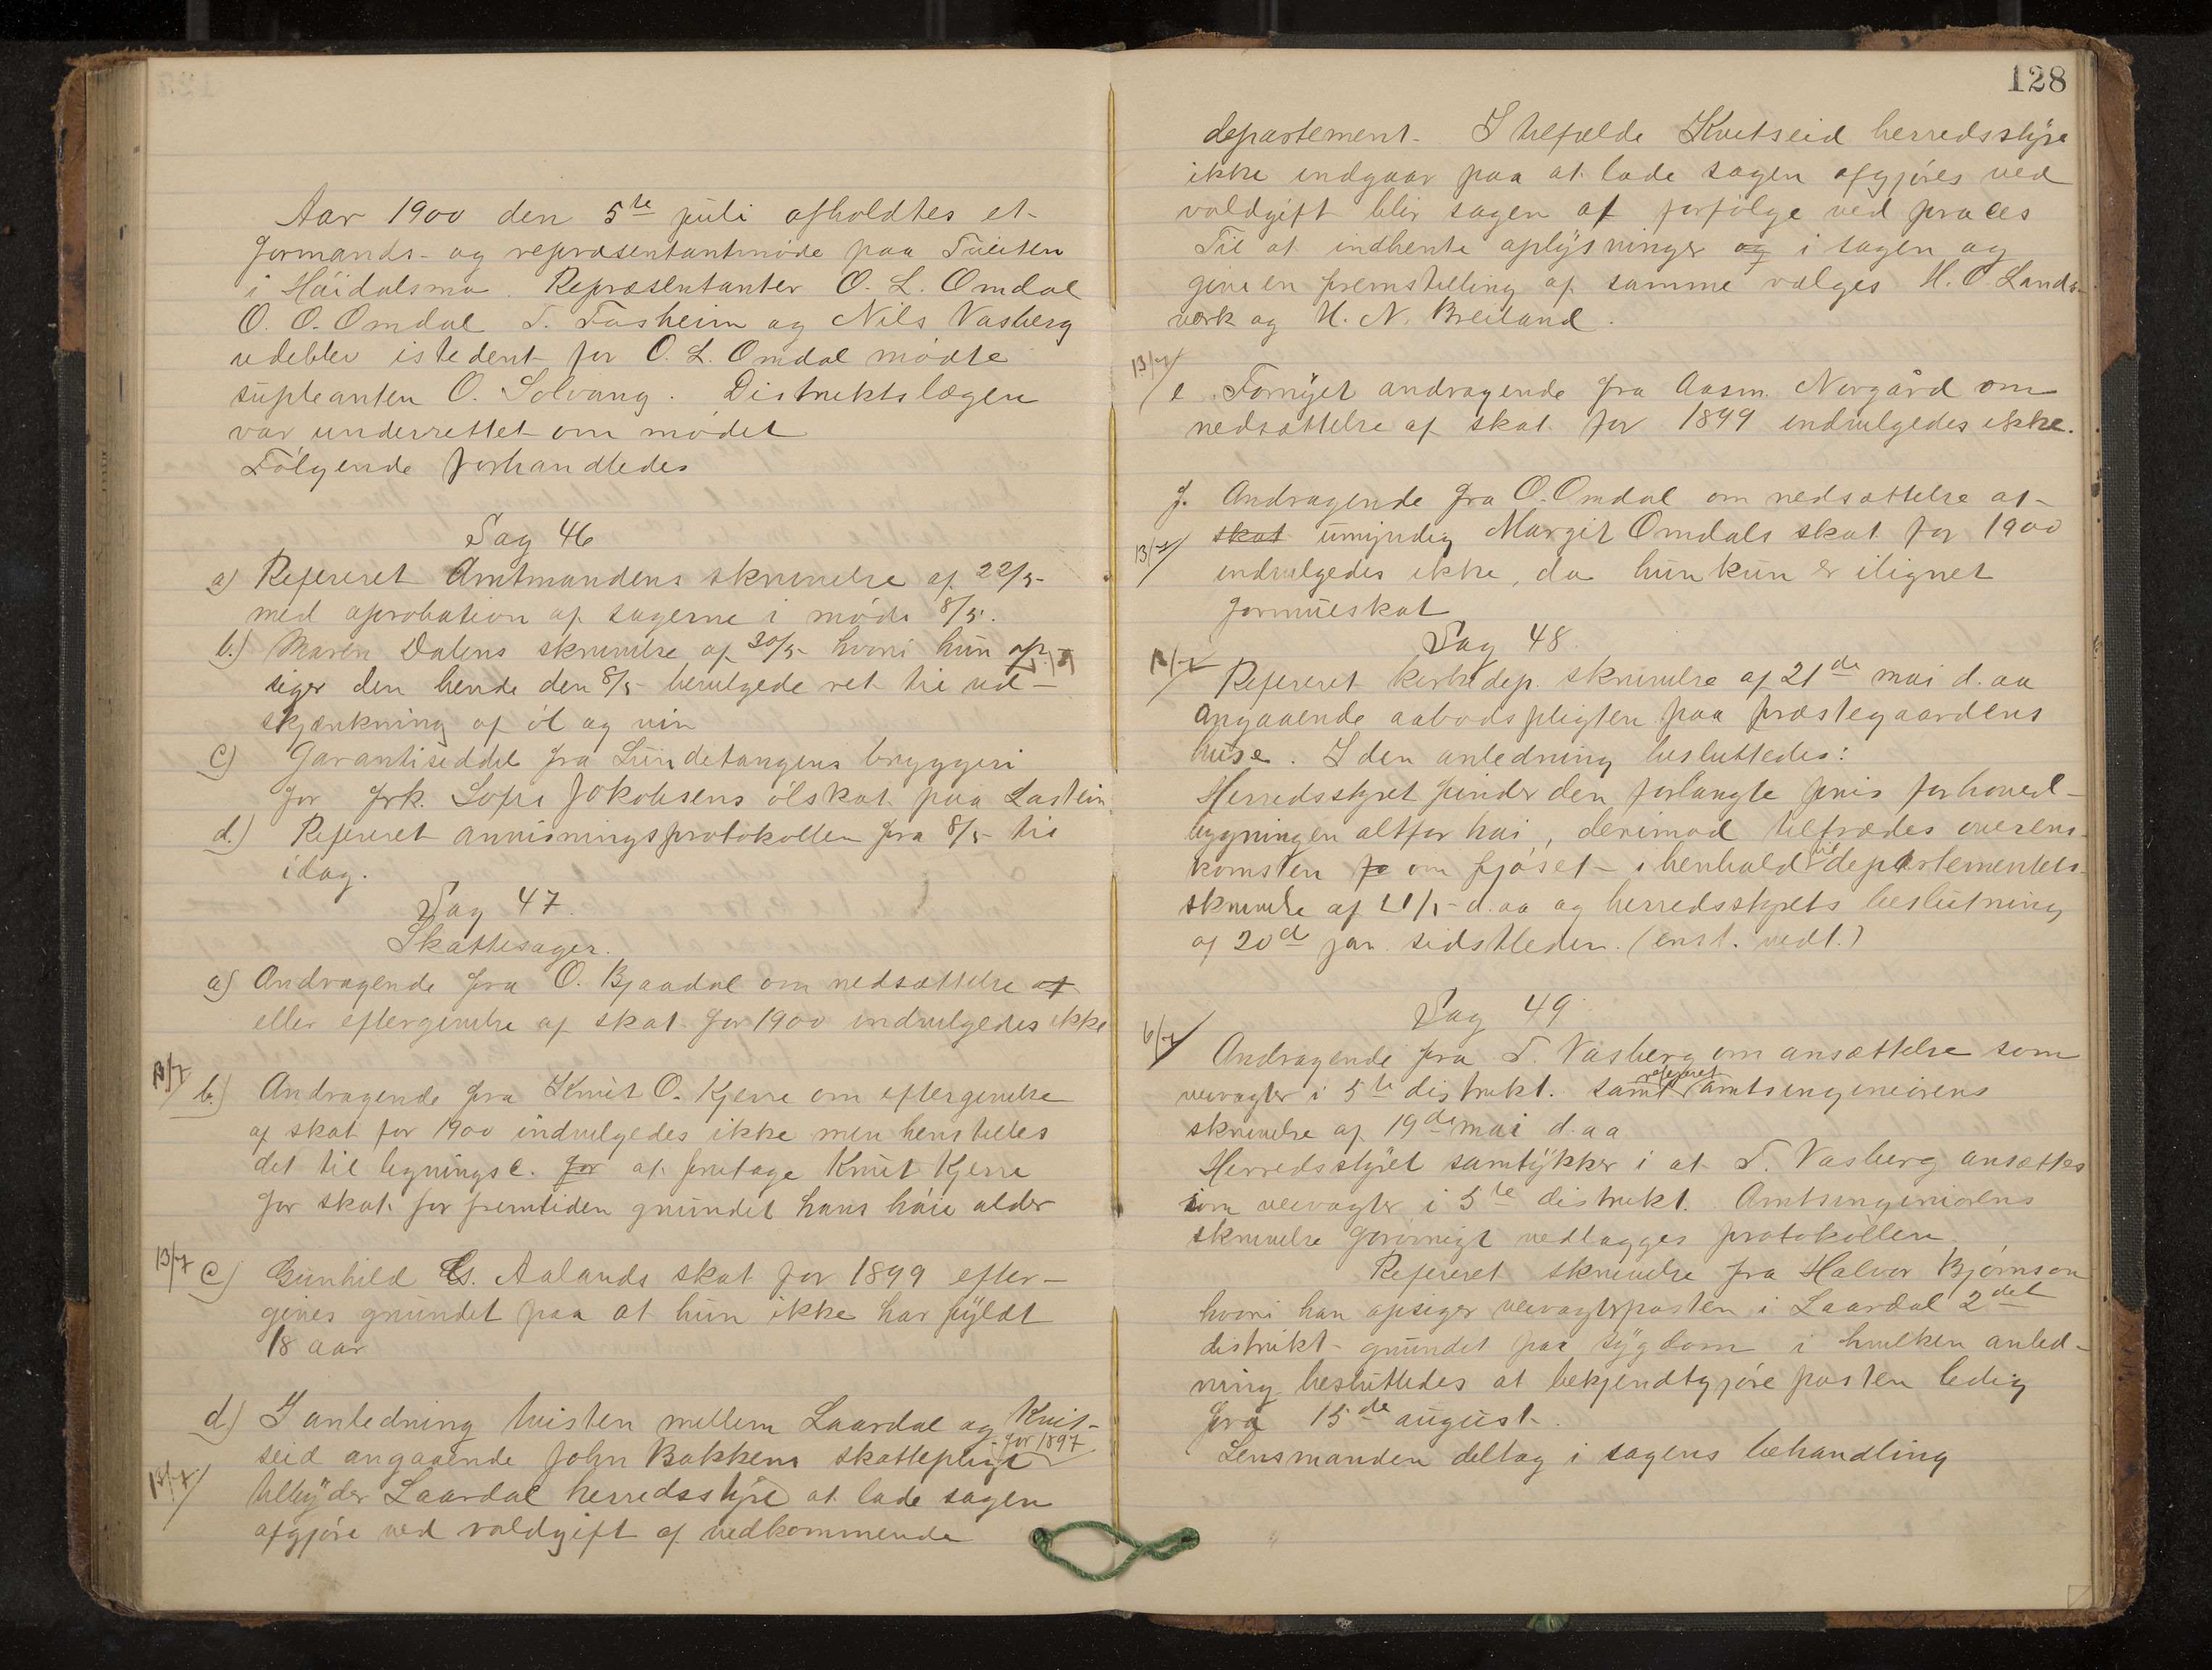 Aar 1900 den 5te juli afholdtes et
formands- og repræsentantmøde paa Tveiten
i Høidalsmo. Repræsentanter O. L. Omdal
O. O. Omdal T. Fosheim og Nils Vasberg
udeblev istedent for O. L. Omdal mødte
supleanten O. Solvang. Distriktslægen
var underrettet om mødet
Følgende forhandledes
Sag 46
a) Refereret Amtmandens skrivelse af 22/5
med aprobation af sagerne i møde 8/5.
b.) Maren Dalens skrivelse af 30/5 hvori hun op-
siger den hende den 8/5 bevilgede ret til ud-
skjænkning af øl og vin
c) Garantiseddel fra Lundetangens bryggeri
for frk. Sofie Jakobsens ølskat paa Lastein
d.) Refereret anvisningsprotokollen fra 8/5 til
idag.
Sag 47.
Skattesager.
a) Andragende fra O. Bjaadal om nedsættelse af
eller eftergivelse af skat for 1900 indvilgedes ikke
13/7
b.) Andragende fra Knut O. Kjerre om eftergivelse
af skat for 1900 indvilgedes ikke men henstilles
det til ligningsc. for at fritage Knut Kjerre
for skat for fremtiden grundet hans høie alder
13/7
c) Gunhild G. Aalands skat for 1899 efter-
gives grundet paa at hun ikke har fyldt
18 aar
d) I anledning tvisten mellem Laardal og Kvit-
seid angaaende John Bakkens skattepligt for 1897
13/7
tilbyder Laardal herredsstyre at lade sagen
afgjøre ved voldgift af vedkommende
128
departement. I tilfælde Kvitseid herredsstyre
ikke indgaar paa at lade sagen afgjøres ved
voldgift blir sagen at forfølge ved proces
Til at indhente oplysninger og i sagen og
give en fremstilling af samme vælges H. O. Lands-
værk og H. N. Breiland.
13/7
e Fornyet andragende fra Aasm. Norgård om
nedsættelse af skat for 1899 indvilgedes ikke.
f. Andragende fra O. Omdal om nedsættelse af
13/7
skat umyndig Margit Omdals skat for 1900
indvilgedes ikke, da hun kun er ilignet
formueskat
Sag 48.
Refereret kirkedep. skrivelse af 21de mai d. aa
angaaende aabodspligten paa præstegaardens
huse. I den anledning besluttedes:
Herredsstyret finder den forlangte pris for hoved-
bygningen altfor høi, derimod tiltrædes overens-
komsten fo om fjøset i henhold til departementets
skrivelse af 21/5 d. aa og herredsstyrets beslutning
af 20de jan. sidstleden. (enst. vedt.)
Sag 49.
6/7
Andragende fra T. Vasberg om ansættelse som
veivogter i 5te distrikt. samt refereret amtsingeniørens
skrivelse af 19de mai d. aa
Herredsstyret samtykker i at T. Vasberg ansættes
som veivogter i 5te distrikt. Amtsingeniørens
skrivelse forøvrigt vedlægges protokollen.
Refereret skrivelse fra Halvor Bjørnson
hvori han opsiger veivogterposten i Laardal 2det
distrikt grundet paa sygdom i hvilken anled-
ning besluttedes at bekjendtgjøre posten ledig
fra 15de august.
Lensmanden deltog i sagens behandling